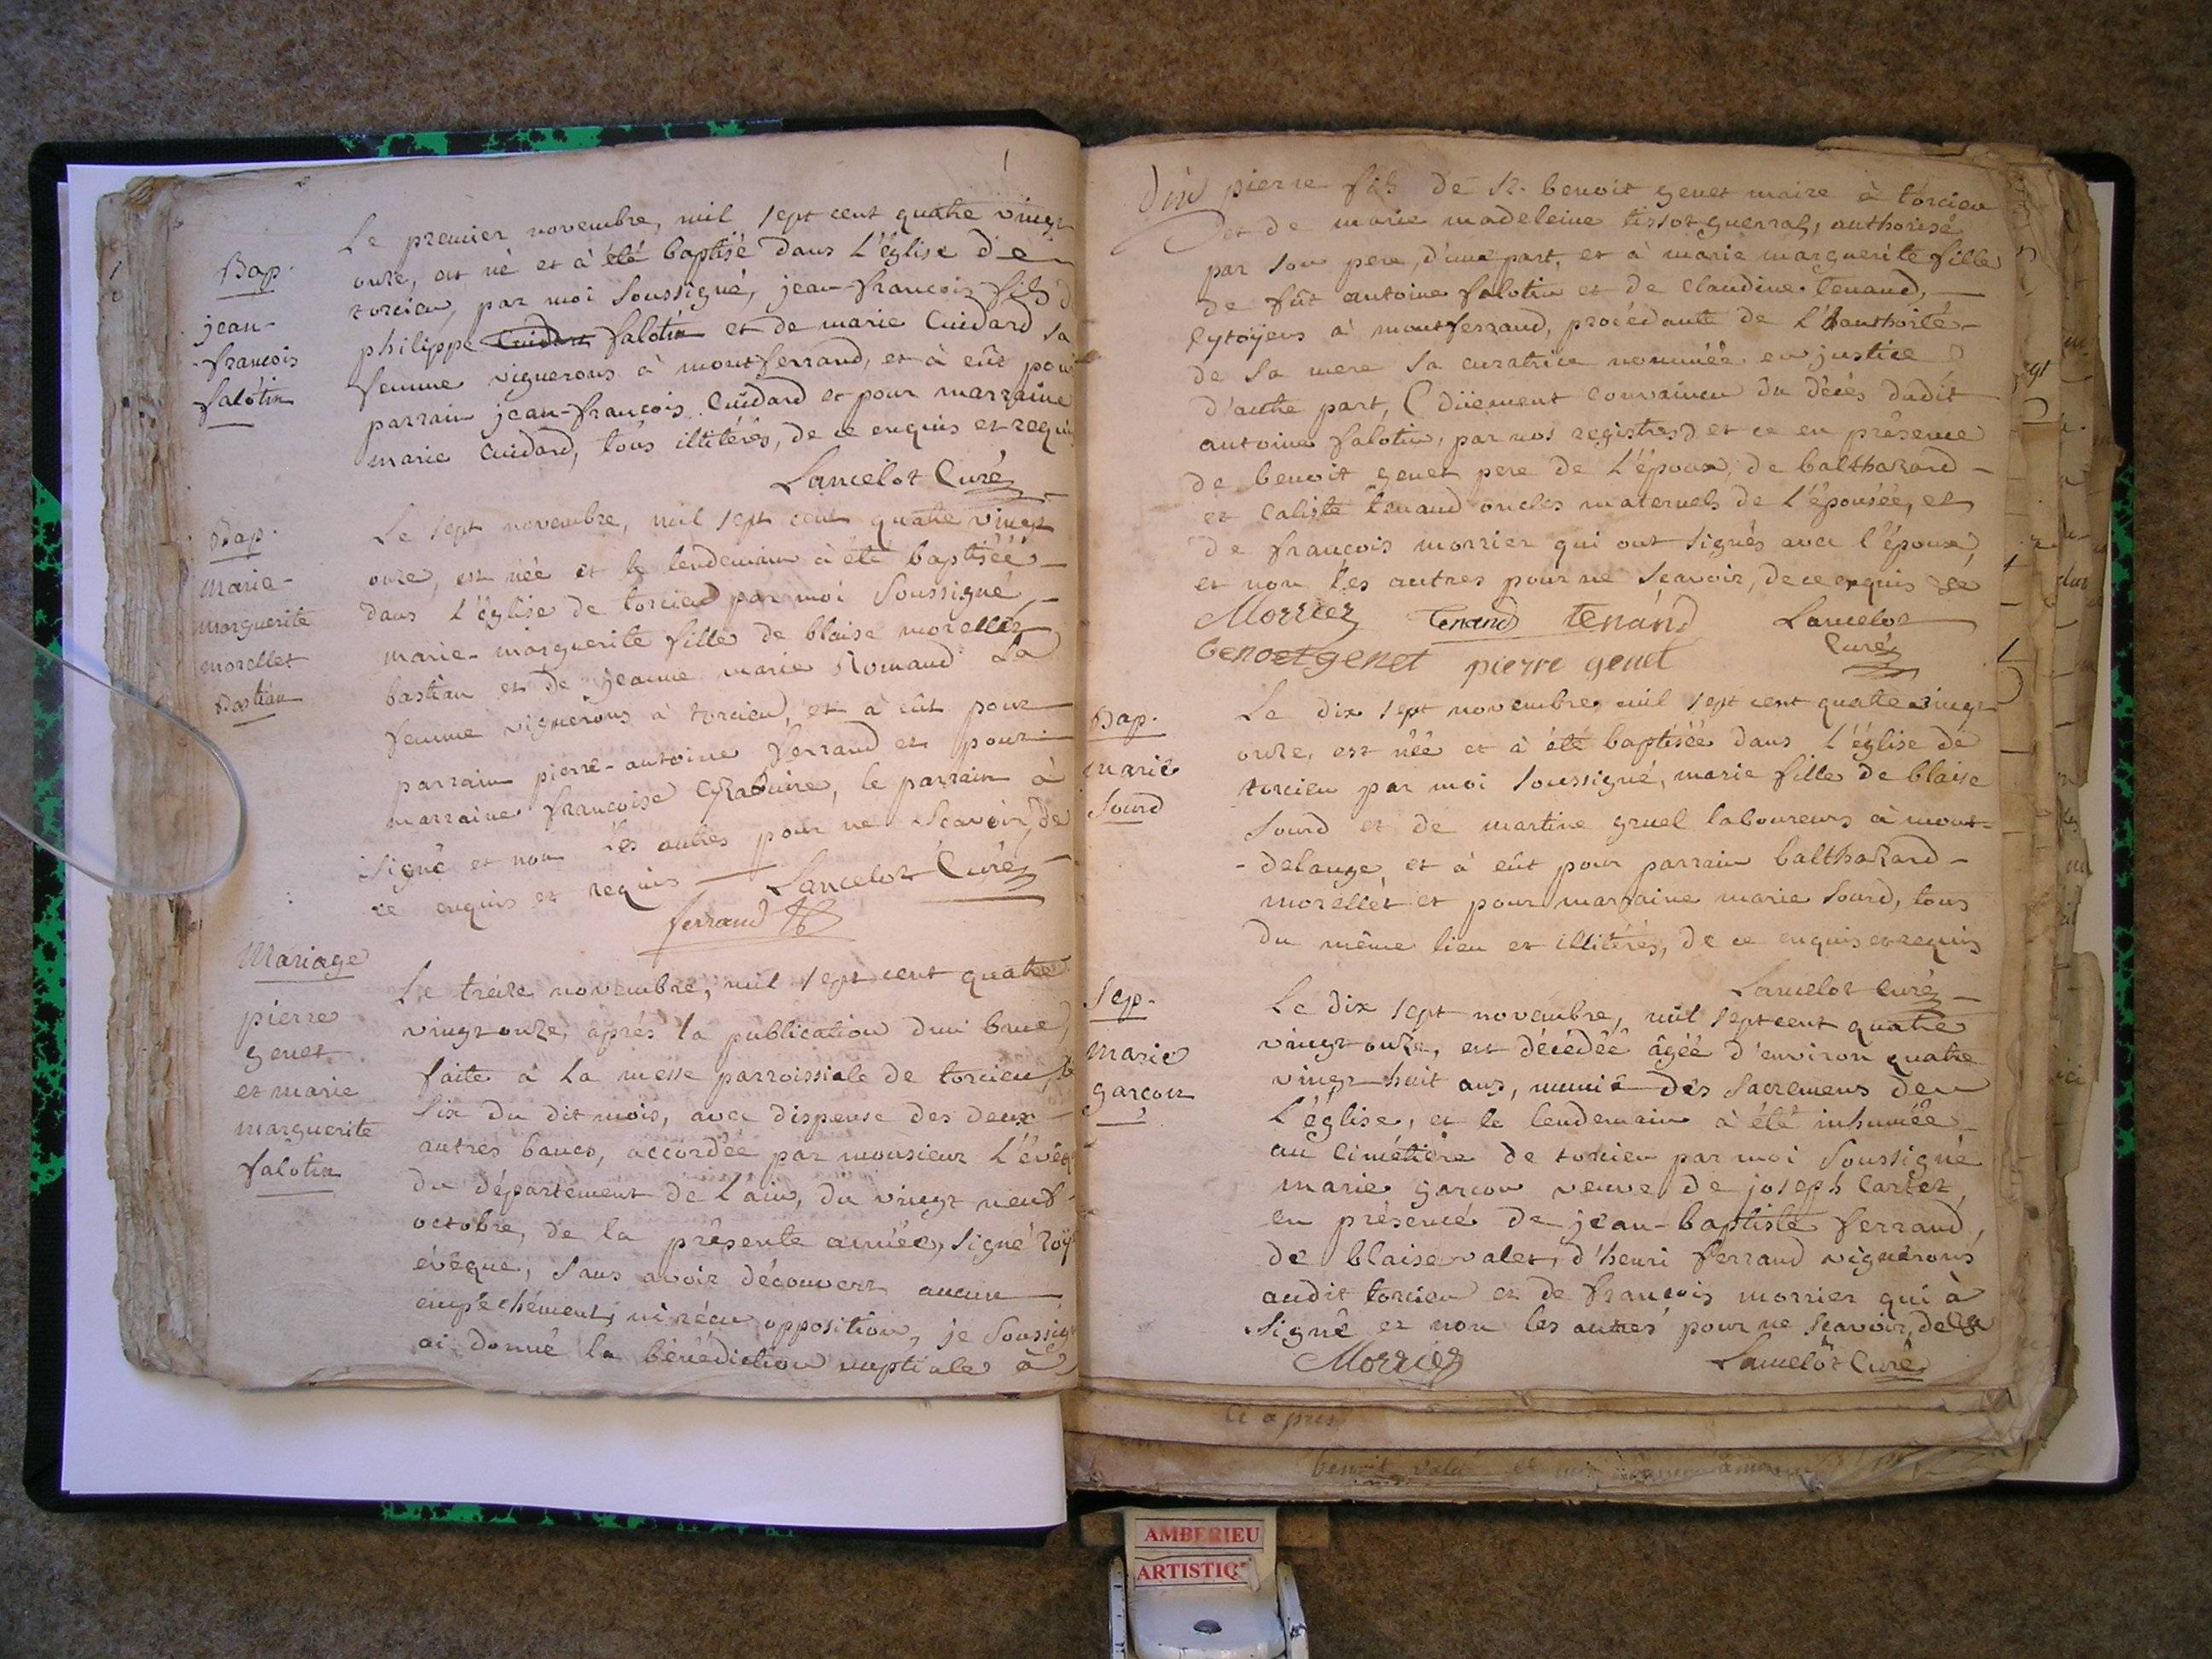 Bap.
jean-
-francois
falotin
Le premier novembre, mil sept cent quatre vingt
onze, est né et à été baptisé dans L'église de
torcieu, par moi soussigné, jean-francois fils d
philippe Cuidard falotin et de marie Cuidard sa
femme vignerons à montferrand, et à eût pour
parrain jean-francois Cuidard et pour marraine
marie Cuidard, tous illitérés, de ce enquis et requis
Lancelot Curé
Bap.
marie-
marguerite
morellet
Bastian
Le sept novembre, mil sept cent quatre vingt
onze, est née et le lendemain à été baptisée
dans L'église de torcieu par moi soussigné,
marie-marguerite fille de blaise morellet
bastian et de jeanne marie Romand sa
femme vignerons à torcieu, et à eût pour
parrain pierre-antoine ferrand et pour
marraine francoise , le parrain à
signé et non les autres pour ne scavoir, de
ce enquis et requis Lancelot Curé
ferrand
Mariage
pierre
genet
et marie
marguerite
falotin
Le treize novembre, mil sept cent quatre
vingt onze, aprés la publication d'un banc
faite à La messe parroissiale de torcieu, le
six du dit mois, avec dispense des deux
autres bancs, accordée par monsieur L'évêq
du département de L'ain, du vingt neuf
octobre, de la présente année, signé royer
évêque, sans avoir découvert aucun
empechement, ni récu opposition, je soussigné
ai donné la bénédiction nuptiale à
pierre fils de Sr. benoit genet maire à torcieu
et de marie madeleine tissot guerraz, authorisé
par son pere, d'une part, et à marie marguerite fille
de fût antoine falotin et de claudine tenand,
Cytoÿens à montferrand, procédante de L'authorité
de sa mere sa curatrice nommée en justice
d'autre part, (düement convaincu du décés dudit
antoine falotin, par nos registres) et ce en présence
de benoit genet pere de L'époux, de balthazard
et caliste tenand oncles maternels de L'épousée, et
de francois morrier qui ont signés avec l'époux,
et non les autres pour ne scavoir, de ce enquis
Morrier Tenand tenand Lancelot
benoet genet pierre genet Curé
Bap.
marie
sourd
Le dix sept novembre, mil sept cent quatre vingt
onze, est née et à été baptisée dans l'église de
torcieu par moi soussigné, marie fille de blaise
sourd et de martine gruel laboureurs à mont-
-delange, et à eût pour parrain balthazard
morellet et pour marraine marie sourd, tous
du même lieu et illitérés, de ce enquis et requis
Lancelot Curé
Sep.
marie
garcon
Le dix sept novembre, mil sept cent quatre
vingt onze, est décédée âgée d'environ quatre
vingt huit ans, munie des sacremens de
L'église, et le lendemain à été inhumée
au cimétière de torcieu par moi soussigné
marie garcon veuve de joseph Carrier,
en présence de jean-baptiste ferrand,
de blaise valet, d'henri ferrand vignerons
audit torcieu et de francois morrier qui à
signé et non les autres pour ne scavoir, de ce
Morrier Lancelot Curé
ci apres
benoit valet
AMBERIEU
ARTISTIQ